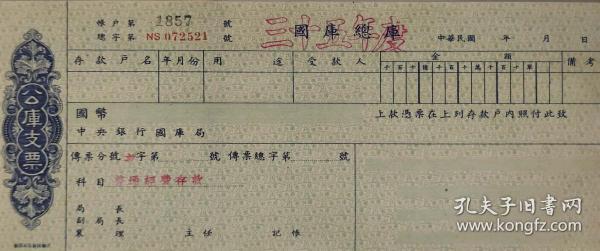 帳户第 1857 號
總字第 NS 072521 號
國庫總庫
三十五年度
中華民國 年 月 日
存款户名 年月份 用途 受款人 金額 備考
千百十億千百十萬千百十單
公庫支票
國幣
上款憑票在上列存款户内照付此致
中央銀行國庫局
傳票分號 字第 號 傳票總字第 號
科目 普通經費存款
局長
副局長
襄理 主任 記帳
孔夫子旧书网
kongfz.com